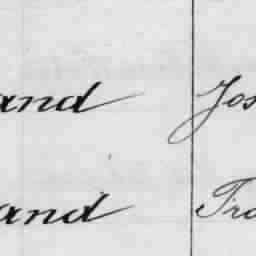 and Jos
and Fra